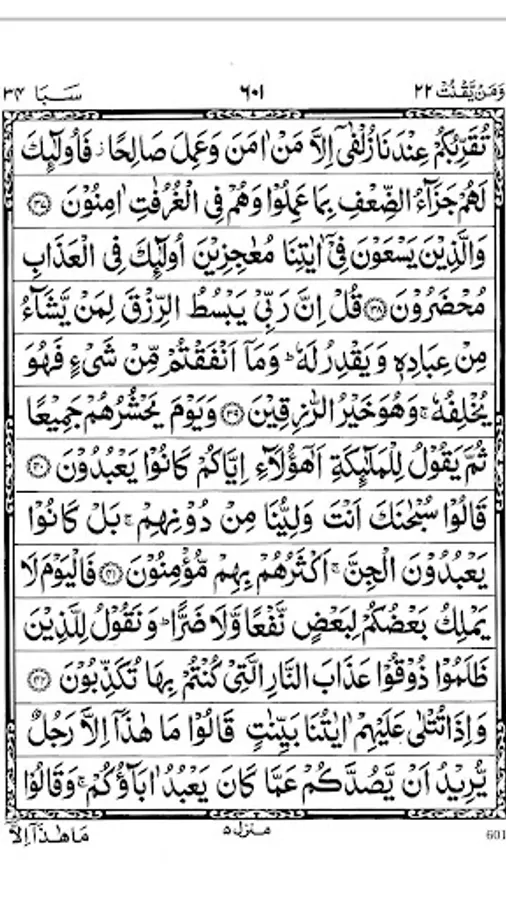 وَمَنْ يَّقْنُتْ ٢٢ ٦٠١ سَبَا ٣٤
تُقَرِّبُكُمْ عِنْدَنَا زُلْفٰۤى اِلَّا مَنْ اٰمَنَ وَعَمِلَ صَالِحًا ز فَاُولٰٓئِكَ
لَهُمْ جَزَآءُ الضِّعْفِ بِمَا عَمِلُوْا وَهُمْ فِى الْغُرُفٰتِ اٰمِنُوْنَ ۝٣٧
وَالَّذِيْنَ يَسْعَوْنَ فِىْۤ اٰيٰتِنَا مُعٰجِزِيْنَ اُولٰٓئِكَ فِى الْعَذَابِ
مُحْضَرُوْنَ ۝٣٨ قُلْ اِنَّ رَبِّىْ يَبْسُطُ الرِّزْقَ لِمَنْ يَّشَآءُ
مِنْ عِبَادِهٖ وَيَقْدِرُ لَهٗ ؕ وَمَاۤ اَنْفَقْتُمْ مِّنْ شَىْءٍ فَهُوَ
يُخْلِفُهٗ ۚ وَهُوَ خَيْرُ الرّٰزِقِيْنَ ۝٣٩ وَيَوْمَ يَحْشُرُهُمْ جَمِيْعًا
ثُمَّ يَقُوْلُ لِلْمَلٰٓئِكَةِ اَهٰٓؤُلَآءِ اِيَّاكُمْ كَانُوْا يَعْبُدُوْنَ ۝٤٠
قَالُوْا سُبْحٰنَكَ اَنْتَ وَلِيُّنَا مِنْ دُوْنِهِمْ ۚ بَلْ كَانُوْا
يَعْبُدُوْنَ الْجِنَّ ۚ اَكْثَرُهُمْ بِهِمْ مُّؤْمِنُوْنَ ۝٤١ فَالْيَوْمَ لَا
يَمْلِكُ بَعْضُكُمْ لِبَعْضٍ نَّفْعًا وَّلَا ضَرًّا ؕ وَنَقُوْلُ لِلَّذِيْنَ
ظَلَمُوْا ذُوْقُوْا عَذَابَ النَّارِ الَّتِىْ كُنْتُمْ بِهَا تُكَذِّبُوْنَ ۝٤٢
وَاِذَا تُتْلٰى عَلَيْهِمْ اٰيٰتُنَا بَيِّنٰتٍ قَالُوْا مَا هٰذَاۤ اِلَّا رَجُلٌ
يُّرِيْدُ اَنْ يَّصُدَّكُمْ عَمَّا كَانَ يَعْبُدُ اٰبَآؤُكُمْ ۚ وَقَالُوْا
مَا هٰذَاۤ اِلَّاۤ منزل ٥ 601